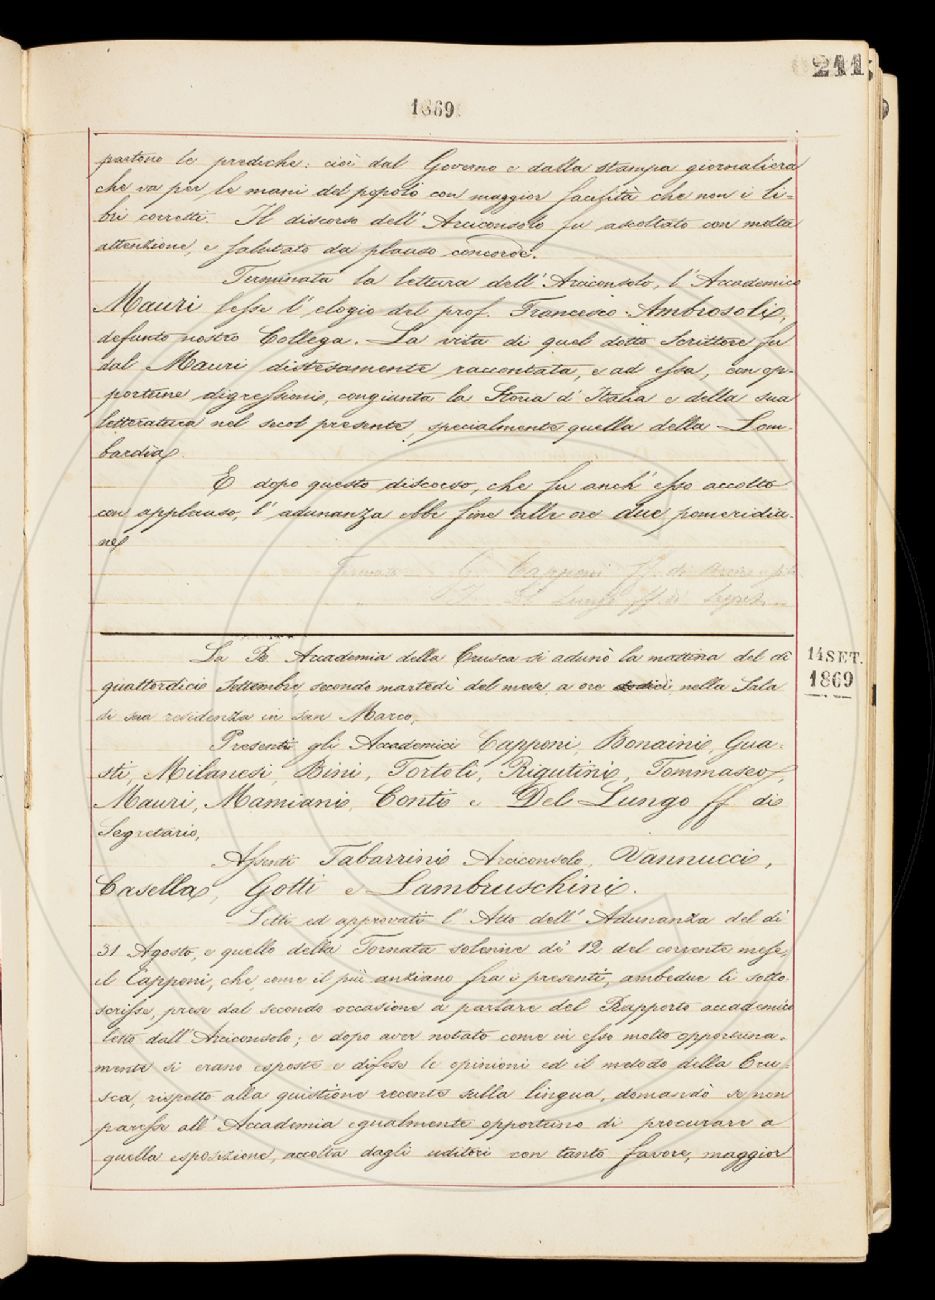 241
1869
partono le prediche: cioè dal Governo e dalla stampa giornaliera
che va per le mani del popolo con maggior facilità che non i li-
bri corretti. Il discorso dell'Arciconsolo fu ascoltato con molta
attenzione, e salutato da plauso concorde.
Terminata la lettura dell'Arciconsolo, l'Accademico
Mauri lesse l'elogio del prof. Francesco Ambrosoli,
defunto nostro Collega. La vita di quel dotto Scrittore fu
dal Mauri distesamente raccontata, e ad essa, con op-
portune digressioni, congiunta la Storia d'Italia e della sua
letteratura nel secol presente, specialmente quella della Lom-
bardia.
E dopo questo discorso, che fu anch'esso accolto
con applauso, l'adunanza ebbe fine alle ore due pomeridia-
ne
Firmato G. Capponi ff. di
I. Del Lungo ff. di Segret.
La R. Accademia della Crusca si adunò la mattina del dì
14 SET.
1869
quattordici Settembre, secondo martedì del mese, a ore dodici nella Sala
di sua residenza in San Marco.
Presenti gli Accademici Capponi, Bonaini, Gua-
sti, Milanesi, Bini, Tortoli, Rigutini, Tommaseo,
Mauri, Mamiani, Conti e Del Lungo ff di
Segretario,
Assenti Tabarrini Arciconsolo, Vannucci,
Casella, Gotti e Lambruschini.
Letti ed approvati l'Atto dell'Adunanza del dì
31 Agosto, e quello della Tornata solenne de' 12 del corrente mese,
il Capponi, che, come il più anziano fra i presenti, ambedue li sotto
scrisse, prese dal secondo occasione a parlare del Rapporto accademico
letto dall'Arciconsolo; e dopo aver notato come in esso molto opportuna-
mente si erano esposte e difese le opinioni ed il metodo della Cru-
sca, rispetto alla quistione recente sulla lingua, domandò se non
paresse all'Accademia egualmente opportuno di procurare a
quella esposizione, accolta dagli uditori con tanto favore, maggior